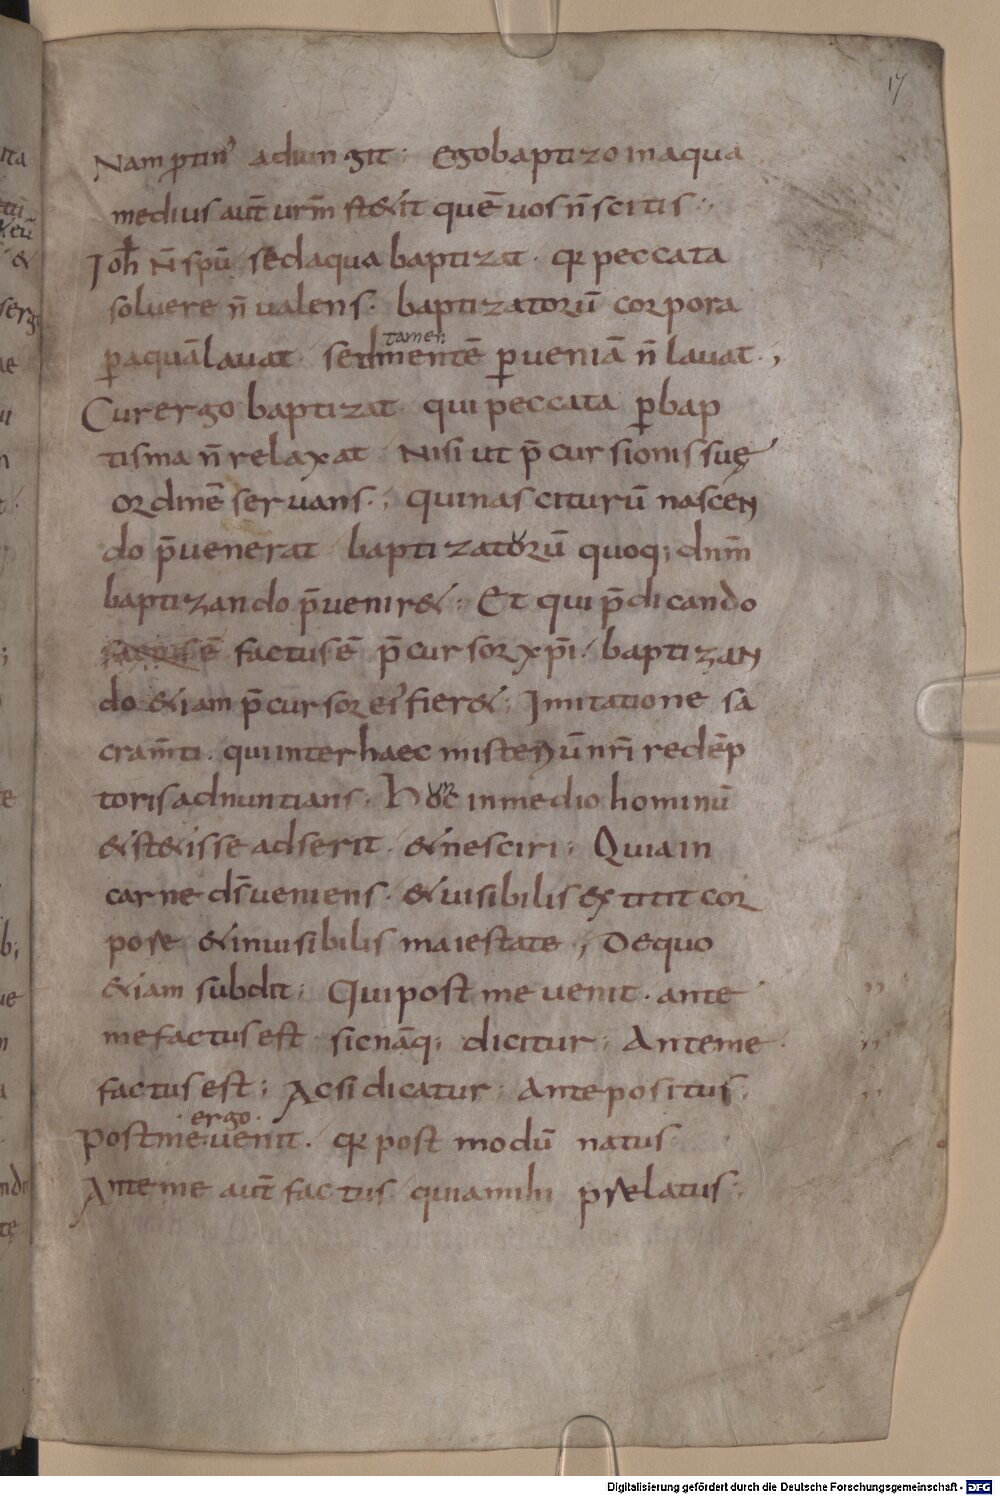 17
Nam ptin᾽ adiungit; Ego baptizo in aqua
medius aut̄ urm̄ st&it quē uos n̄ scitis;
Ioh̄ N̄ spū sed aqua baptizat. qr peccata
soluere n̄ ualens. baptizatorū corpora
p aquā lauat sed tamen mentē p ueniā n̄ lauat.,
Cur ergo baptizat qui peccata p bap
tisma n̄ relaxat Nisi ut p̄cursionis suę
ordinē seruans.; qui nasciturū nascen
do p̄uenerat baptizatorū quoq; dnm̄
baptizando p̄uenir&; Et qui p̄dicando
factusē p̄cursor xp̄i. baptizan
do &iam p̄cursor ei᾽ fier&; Imitatione sa
cram̄ti. qui inter haec misteriū nr̄i redēp
toris adnuntians. Hunc in medio hominū
& st&isse adserit & nesciri; Quia in
carne ds̄ ueniens. & uisibilis extitit cor
pore & inuisibilis maiestate; De quo
&iam subdit; Qui post me uenit. ante
me factus est sic nāq; dicitur; Ante me
factus est; Ac si dicatur; Ante positus;
Post me ergo uenit. qr post modū natus
Ante me aut̄ factus quia mihi prelatus;
Digitalisierung gefördert durch die Deutsche Forschungsgemeinschaft - DFG